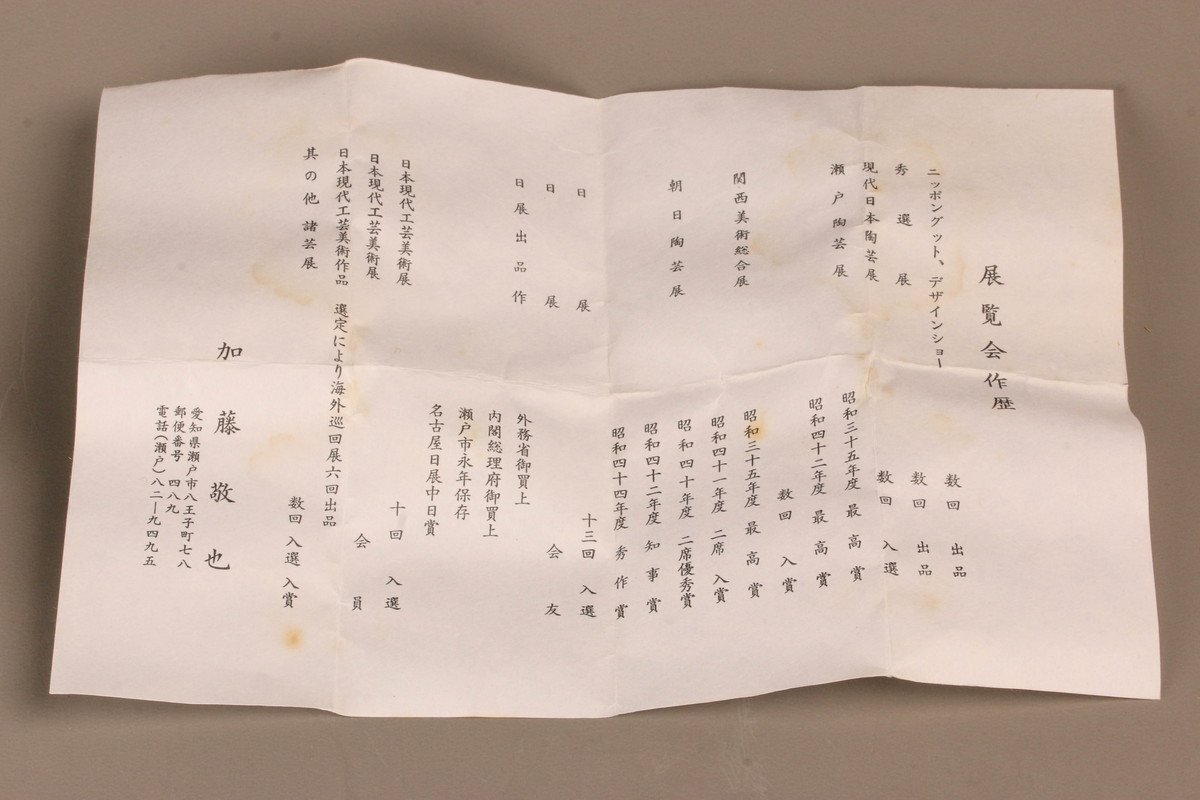 展覧会作歴
ニッポングット、デザインショー 数回 出品
秀選展 数回 出品
現代日本陶芸展 数回 入選
瀬戸陶芸展 昭和三十五年度 最高賞
昭和四十二年度 最高賞
数回 入賞
関西美術総合展 昭和三十五年度 最高賞
昭和四十一年度 二席 入賞
朝日陶芸展 昭和四十年度 二席優秀賞
昭和四十二年度 知事賞
昭和四十四年度 秀作賞
日展 十三回 入選
日展 会友
日展出品作 外務省御買上
内閣総理府御買上
瀬戸市永年保存
名古屋日展中日賞
日本現代工芸美術展 十回 入選
日本現代工芸美術展 会員
日本現代工芸美術作品 選定により海外巡回展六回出品
其の他諸芸展 数回入選入賞
加藤敬也
愛知県瀬戸市八王子町七八
郵便番号 四八九
電話(瀬戸)八二―九四九五